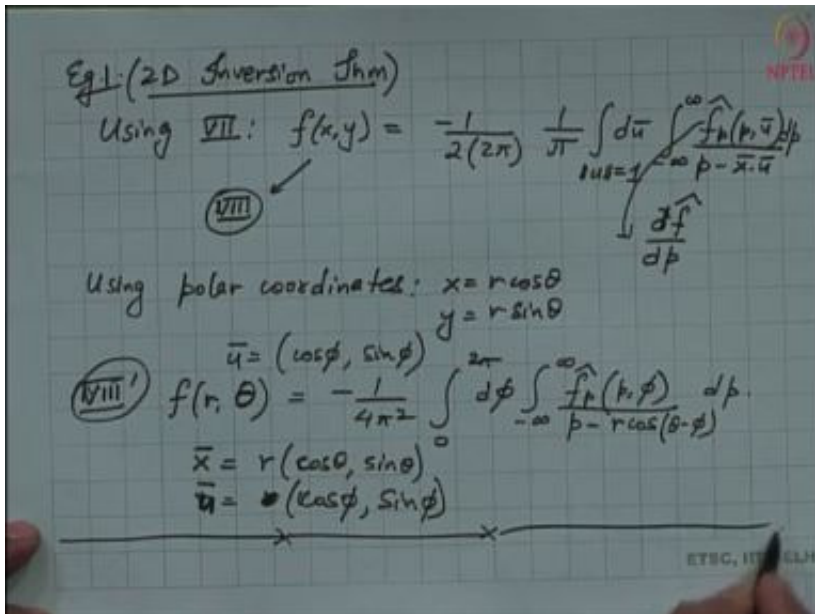 NPTEL
Eg1. (2D Inversion Thm)
Using VII: f(x,y) = -1/2(2π) 1/π ∫_{|u|=1} dū ∫_{-∞}^{∞} f̂_p(p,ū)dp / p - x̄.ū
VIII
df̂/dp
Using polar coordinates: x = r cosθ
y = r sinθ
ū = (cosφ, sinφ)
VIII' f(r, θ) = - 1/4π² ∫_0^{2π} dφ ∫_{-∞}^{∞} f̂_p(p,φ) / p - r cos(θ-φ) dp.
x̄ = r(cosθ, sinθ)
ū = (cosφ, sinφ)
ETSC, IIT DELH